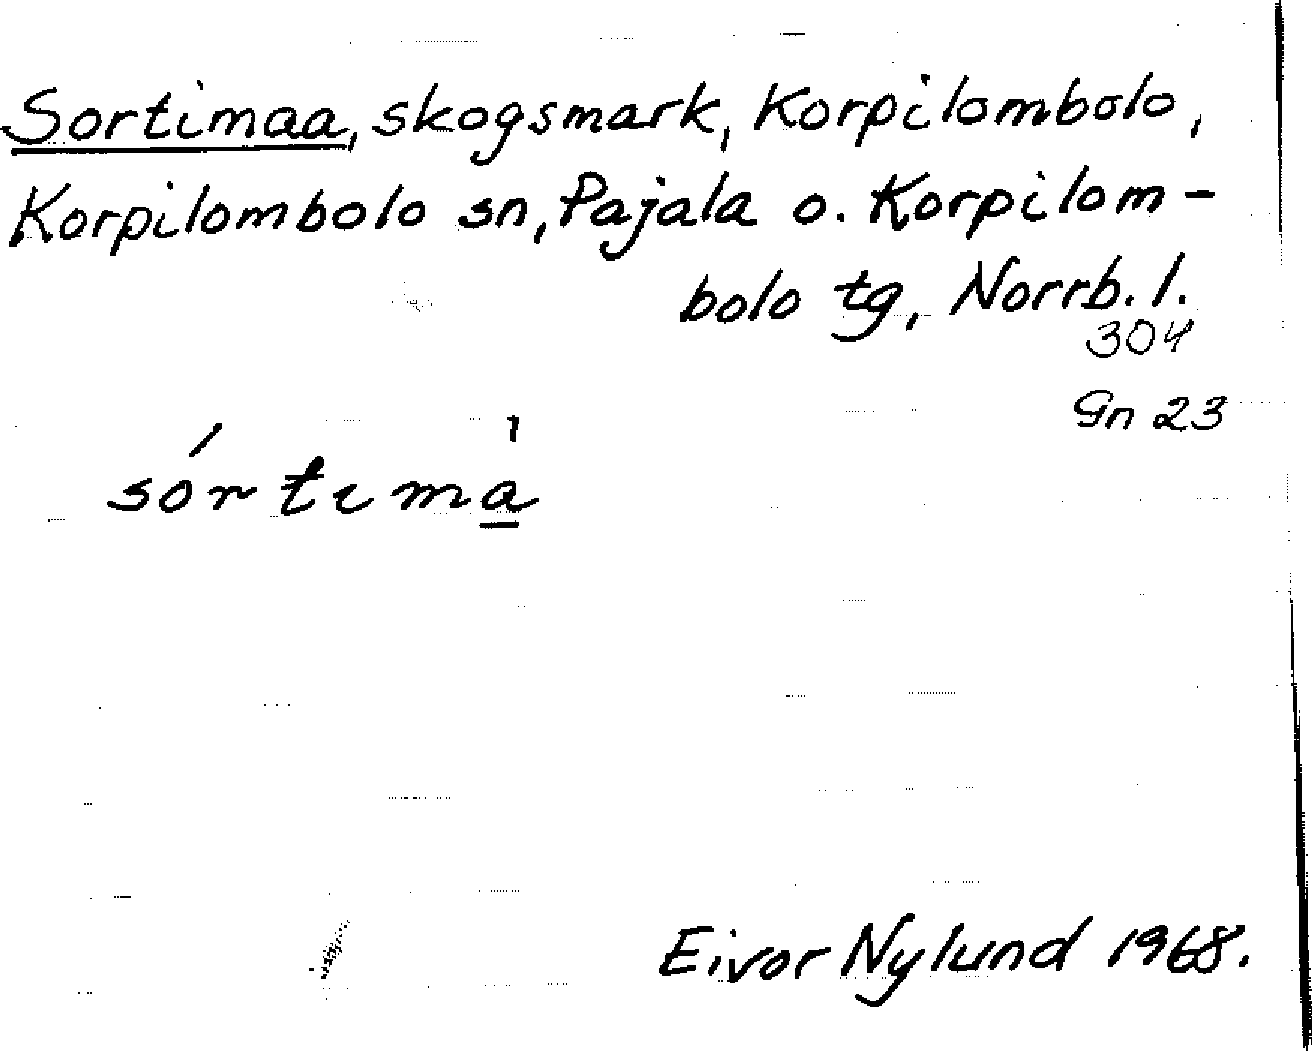 Sortimaa, skogsmark, Korpilombolo,
Korpilombolo sn, Pajala o. Korpilom-
bolo tg, Norrb. l.
304
Gn 23
sórtimà̱
Eivor Nylund 1968.